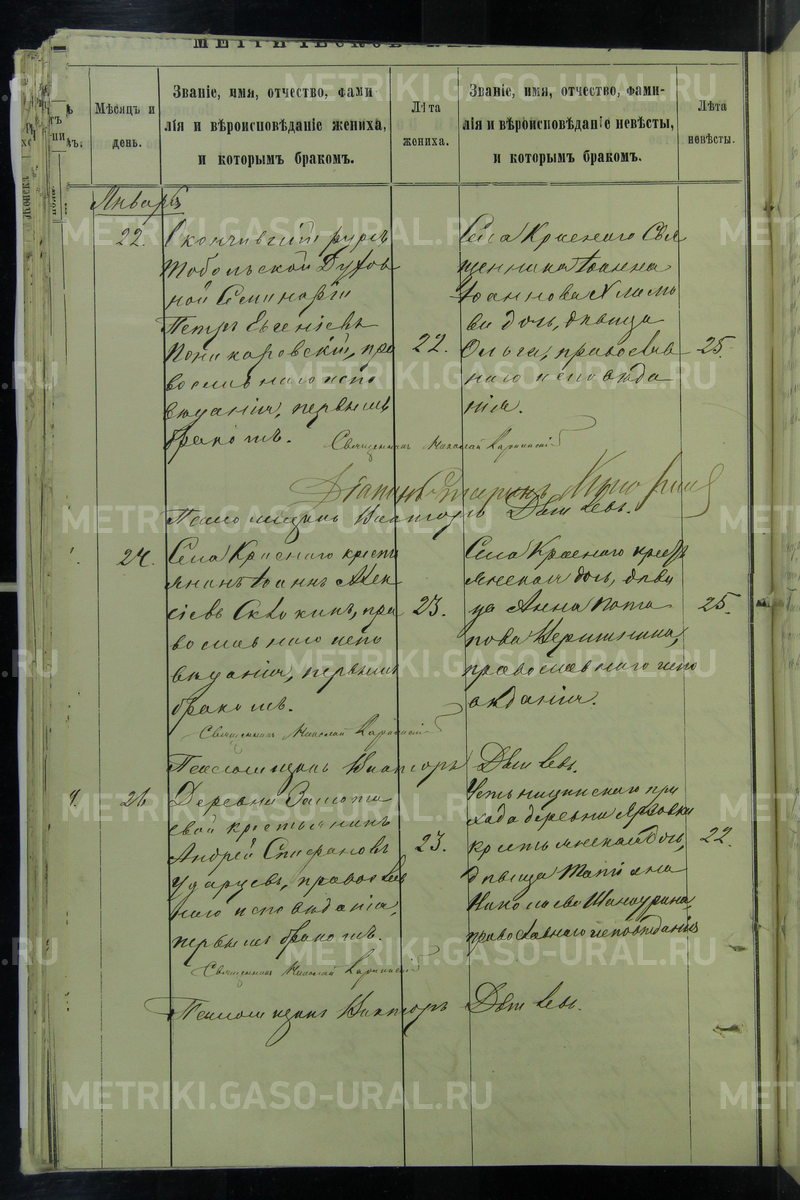 Мѣсяцъ и
день.
Званіе, имя, отчество, фами
лія и вѣроисповѣданіе жениха,
и которымъ бракомъ.
Лѣта
жениха.
Званіе, имя, отчество, фами-
лія и вѣроисповѣданіе невѣсты,
и которымъ бракомъ.
Лѣта
невѣсты.
Январь
22.
Окончившій курсъ
Тобольской Духов
ной Семинаріи
Петръ Евгеніевъ
Поникаровскій, пра
вославнаго испо
вѣданія, первымъ
бракомъ.
22.
Села Краснаго Свя
щенника Іоанна
Іоаннова
дочь, дѣвица
Ольга, православ
наго исповѣда
нія.
25.
Священникъ Николай
Діаконъ
Псаломщикъ Викторъ
24.
Села Краснаго кресть
янинъ Іоаннъ Алек
сіевъ пра
вославнаго испо
вѣданія, первымъ
бракомъ.
23.
Села Краснаго кресть
янская дочь, дѣви
ца Анна Пота
пова
православнаго испо
вѣданія.
25.
Священникъ Николай
Псаломщикъ Викторъ
26.
Деревни
крестьянинъ
Андрей
Ударцевъ, православ
наго исповѣданія,
первымъ бракомъ.
23.
Усть-Ницинскаго при
хода деревни
крестьянская дочь,
дѣвица Татіана
Николаева
православнаго исповѣданія
22.
Священникъ Николай
Псаломщикъ Викторъ
METRIKI.GASO-URAL.RU